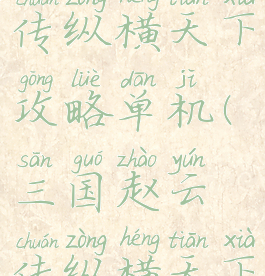 chuán zòng héng tiān xià
传纵横天下
gōng lüè dān jī
攻略单机(
sān guó zhào yún
三国赵云
chuán zòng héng tiān xià
传纵横天下